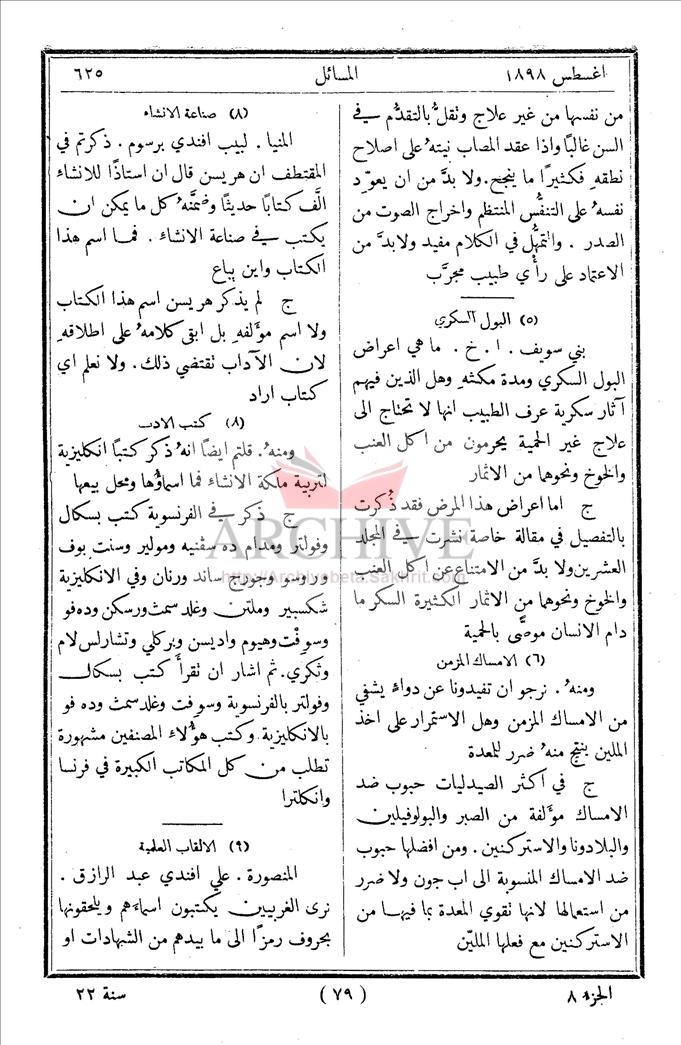 اغسطس ١٨٩٨
المسائل
٦٢٥
من نفسها من غير علاج وتقلُّ بالتقدُّم في
السن غالبًا واذا عقد المصاب نيتهُ على اصلاح
نطقهِ فكثيرًا ما ينجح. ولا بدَّ من ان يعوّد
نفسهُ على التنفُّس المنتظم واخراج الصوت من
الصدر . والتمهُّل في الكلام مفيد ولا بدَّ من
الاعتماد على رأي طبيب مجرَّب
(٥) البول السكري
بني سويف . ا . خ . ما هي اعراض
البول السكري ومدة مكثهِ وهل الذين فيهم
آثار سكرية عرف الطبيب انها لا تحتاج الى
علاج غير الحمية يحرمون من اكل العنب
والخوخ ونحوهما من الاثمار
ج اما اعراض هذا المرض فقد ذُكرت
بالتفصيل في مقالة خاصة نشرت في المجلد
العشرين ولا بدَّ من الامتناع عن اكل العنب
والخوخ ونحوهما من الاثمار الكثيرة السكر ما
دام الانسان موصَّى بالحمية
(٦) الامساك المزمن
ومنهُ . نرجو ان تفيدونا عن دواءٍ يشفي
من الامساك المزمن وهل الاستمرار على اخذ
الملين ينتج منهُ ضرر للمعدة
ج في اكثر الصيدليات حبوب ضد
الامساك مؤلفة من الصبر والبولوفيلين
والبلادونا والاستركنين . ومن افضلها حبوب
ضد الامساك المنسوبة الى اب جون ولا ضرر
من استعمالها لانها تقوي المعدة بما فيها من
الاستركنين مع فعلها المليّن
(٨) صناعة الانشاء
المنيا . لبيب افندي برسوم . ذكرتم في
المقتطف ان هريسن قال ان استاذًا للانشاء
الَّف كتابًا حديثًا وضمَّنهُ كل ما يمكن ان
يكتب في صناعة الانشاء . فما اسم هذا
الكتاب واين يباع
ج لم يذكر هريسن اسم هذا الكتاب
ولا اسم مؤلفهِ بل ابقى كلامهُ على اطلاقهِ
لان الآداب تقتضي ذلك. ولا نعلم اي
كتاب اراد
(٨) كتب الادب
ومنهُ . قلتم ايضًا انهُ ذكر كتبًا انكليزية
لتربية ملكة الانشاء فما اسماؤها ومحل بيعها
ج ذكر في الفرنسوية كتب بسكال
وفولتر ومدام ده سڤنيه ومولير وسنت بوف
وروسو وجورج ساند ورنان وفي الانكليزية
شكسبير وملتن وغلد سمث ورسكن وده فو
وسوفت وهيوم واديسن وبركلي وتشارلس لام
وثكري. ثم اشار ان تقرأ كتب بسكال
وفولتر بالفرنسوية وسوفت وغلد سمث وده فو
بالانكليزية وكتب هؤلاء المصنفين مشهورة
تطلب من كل المكاتب الكبيرة في فرنسا
وانكلترا
(٩) الالقاب العلمية
المنصورة . علي افندي عبد الرازق .
نرى الغربيين يكتبون اسماءهم ويلحقونها
بحروف رمزًا الى ما بيدهم من الشهادات او
الجزء ٨
(٧٩)
سنة ٢٢
ARCHIVE
http://Archivebeta.Sakhrit.com